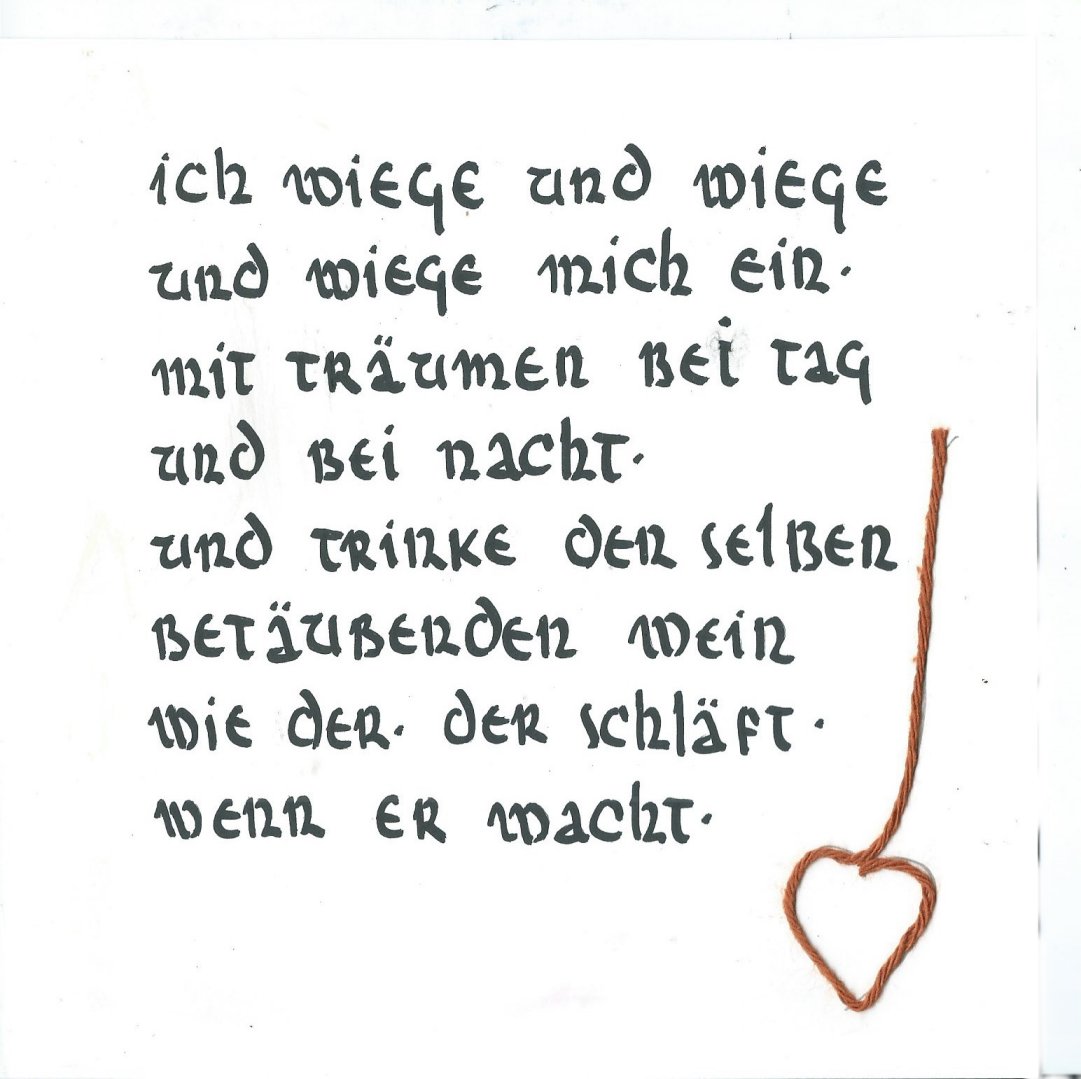 ich wiege und wiege
und wiege mich ein.
mit träumen bei tag
und bei nacht.
und trinke den selben
betäubenden wein
wie der. der schläft.
wenn er wacht.